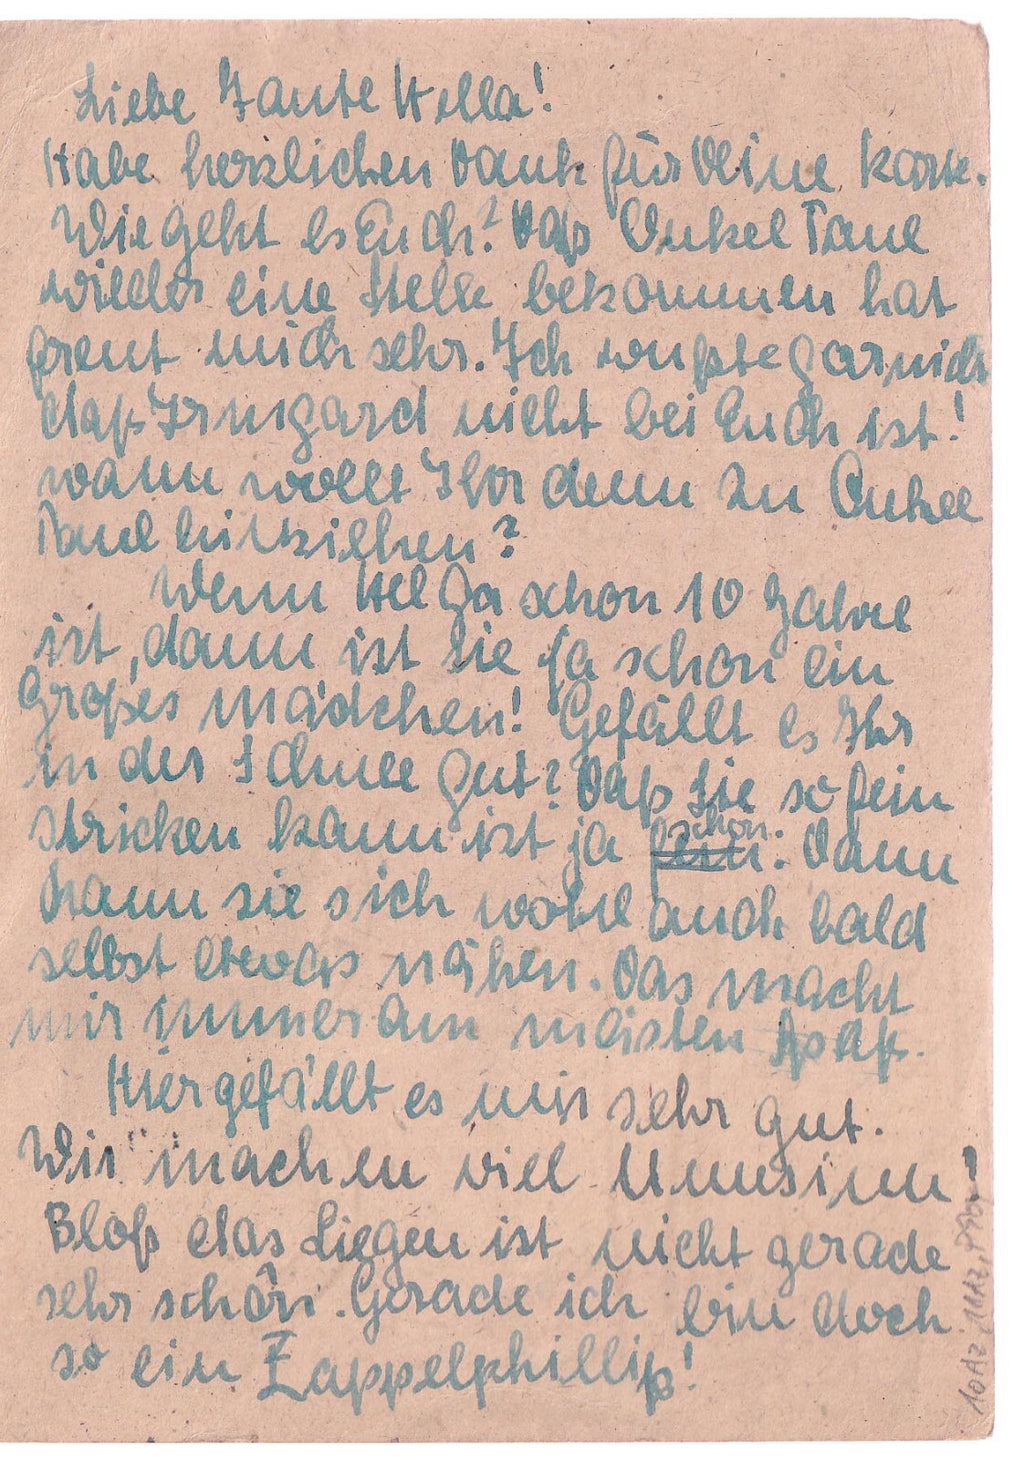 Liebe Tante Hella!
Habe herzlichen Dank für Deine Karte.
Wie geht es Euch? Daß Onkel Paul
wieder eine Stelle bekommen hat
freut mich sehr. Ich wußte garnich
daß Irmgard nicht bei Euch ist!
wann wollt Ihr denn zu Onkel
Paul hinziehen?
Wenn Helga schon 10 Jahre
ist, dann ist sie ja schon ein
großes Mädchen! Gefällt es Ihr
in der Schule gut? Daß Sie so fein
schön.
stricken kann ist ja fein. Dann
kann sie sich wohl auch bald
selbst etwas nähen. Das macht
mir immer am meisten Spaß.
Hier gefällt es mir sehr gut.
Wir machen viel Unnsinn!
Bloß das Liegen ist nicht gerade
sehr schön. Gerade ich bin doch
so ein Zappelphillip!